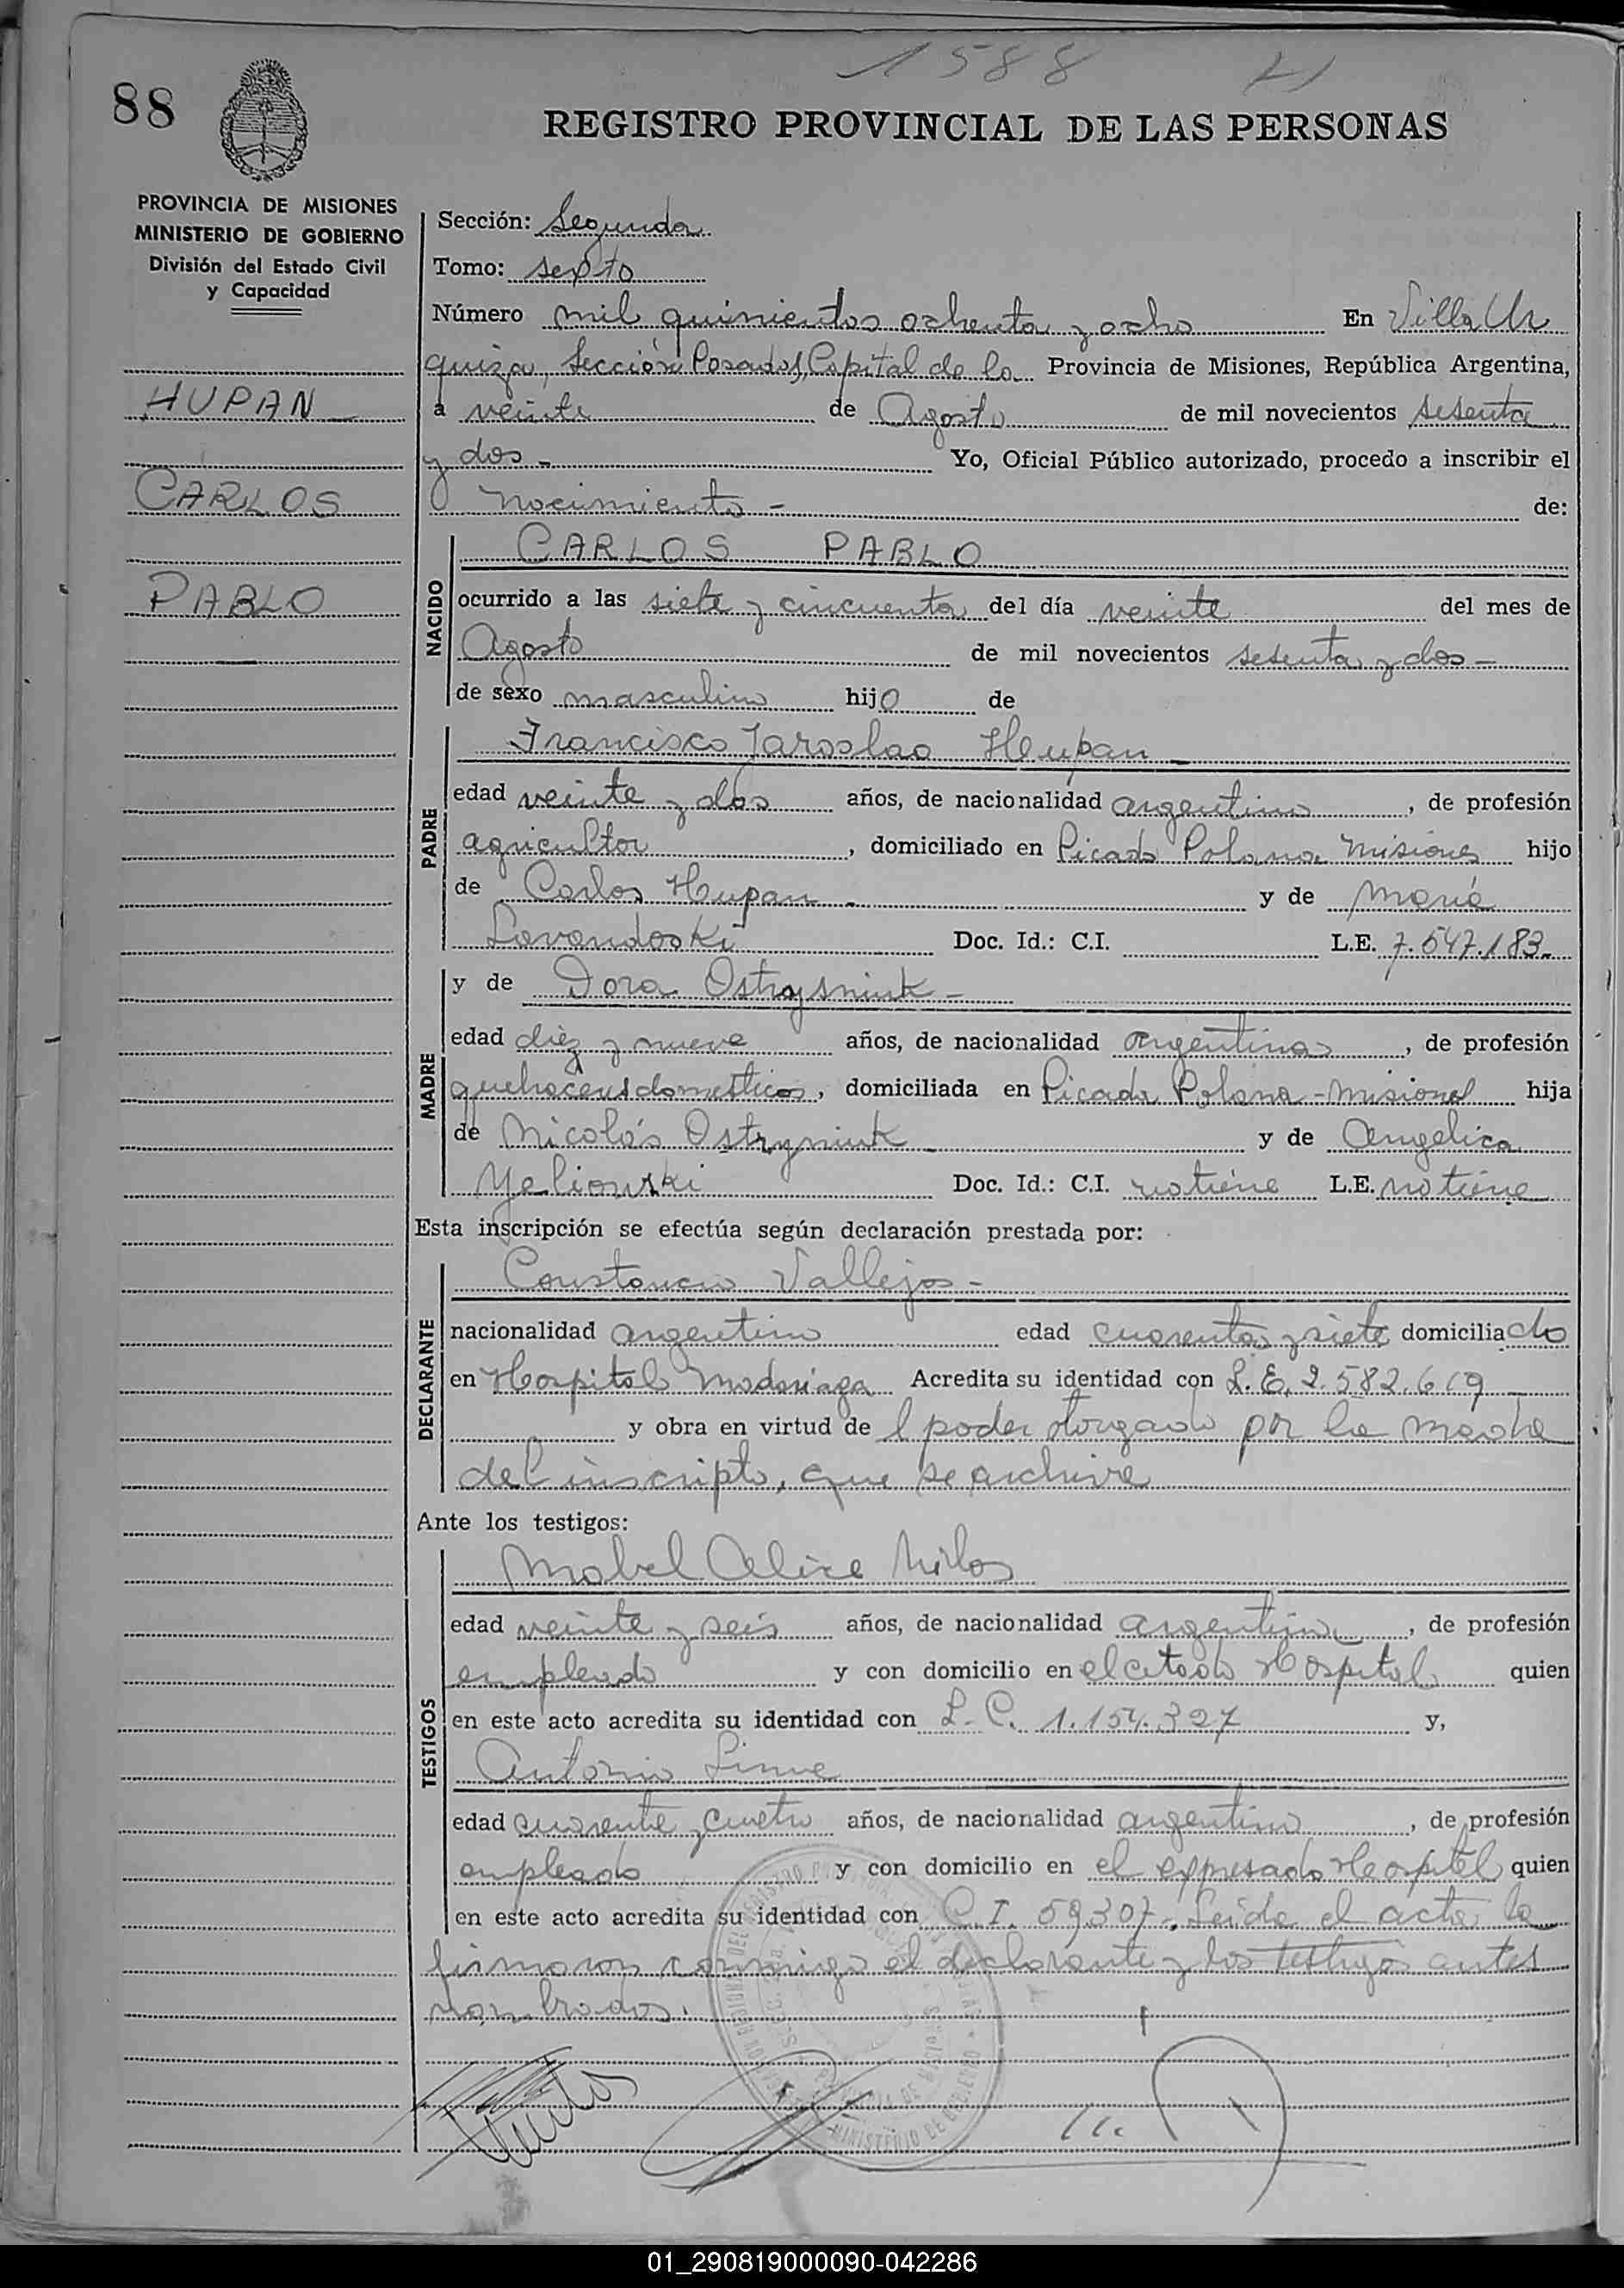 1588
88
REGISTRO PROVINCIAL DE LAS PERSONAS
PROVINCIA DE MISIONES
MINISTERIO DE GOBIERNO
División del Estado Civil
y Capacidad
HUPAN
CARLOS
PABLO
Sección: Segunda
Tomo: sexto
Número mil quinientos ochenta y ocho En Villa Ur
quiza, Sección Posadas, Capital de la Provincia de Misiones, República Argentina,
a veinte de Agosto de mil novecientos sesenta
y dos - Yo, Oficial Público autorizado, procedo a inscribir el
nacimiento - de:
NACIDO
CARLOS PABLO
ocurrido a las siete y cincuenta del día veinte del mes de
Agosto de mil novecientos sesenta y dos -
de sexo masculino hijo de
PADRE
Francisco Jaroslao Hupan
edad veinte y dos años, de nacionalidad argentino, de profesión
agricultor, domiciliado en Picada Polana Misiones hijo
de Carlos Hupan y de María
Lavandoski Doc. Id.: C.I. L.E. 7.547.183
MADRE
y de Dora Ostrysniuk -
edad diez y nueve años, de nacionalidad argentina, de profesión
quehaceres domesticos, domiciliada en Picada Polana - Misiones hija
de Nicolás Ostryniuk y de Angelica
Yeliouski Doc. Id.: C.I. no tiene L.E. no tiene
Esta inscripción se efectúa según declaración prestada por:
DECLARANTE
Constancio Vallejos -
nacionalidad argentino edad cuarenta y siete domiciliado
en Hospital Madariaga Acredita su identidad con L.E. 2.582.619
y obra en virtud de l poder otorgado por la madre
del inscripto, que se archiva
Ante los testigos:
TESTIGOS
Mabel Alice
edad veinte y seis años, de nacionalidad argentina, de profesión
empleada y con domicilio en el citado Hospital quien
en este acto acredita su identidad con L.C. 1.154.327 y,
Antonio
edad cuarenta y cuatro años, de nacionalidad argentino, de profesión
empleado y con domicilio en el expresado Hospital quien
en este acto acredita su identidad con C.I. 59307. Leida el acta la
firmaron conmigo el declarante y los testigos antes
nombrados.
01_290819000090-042286